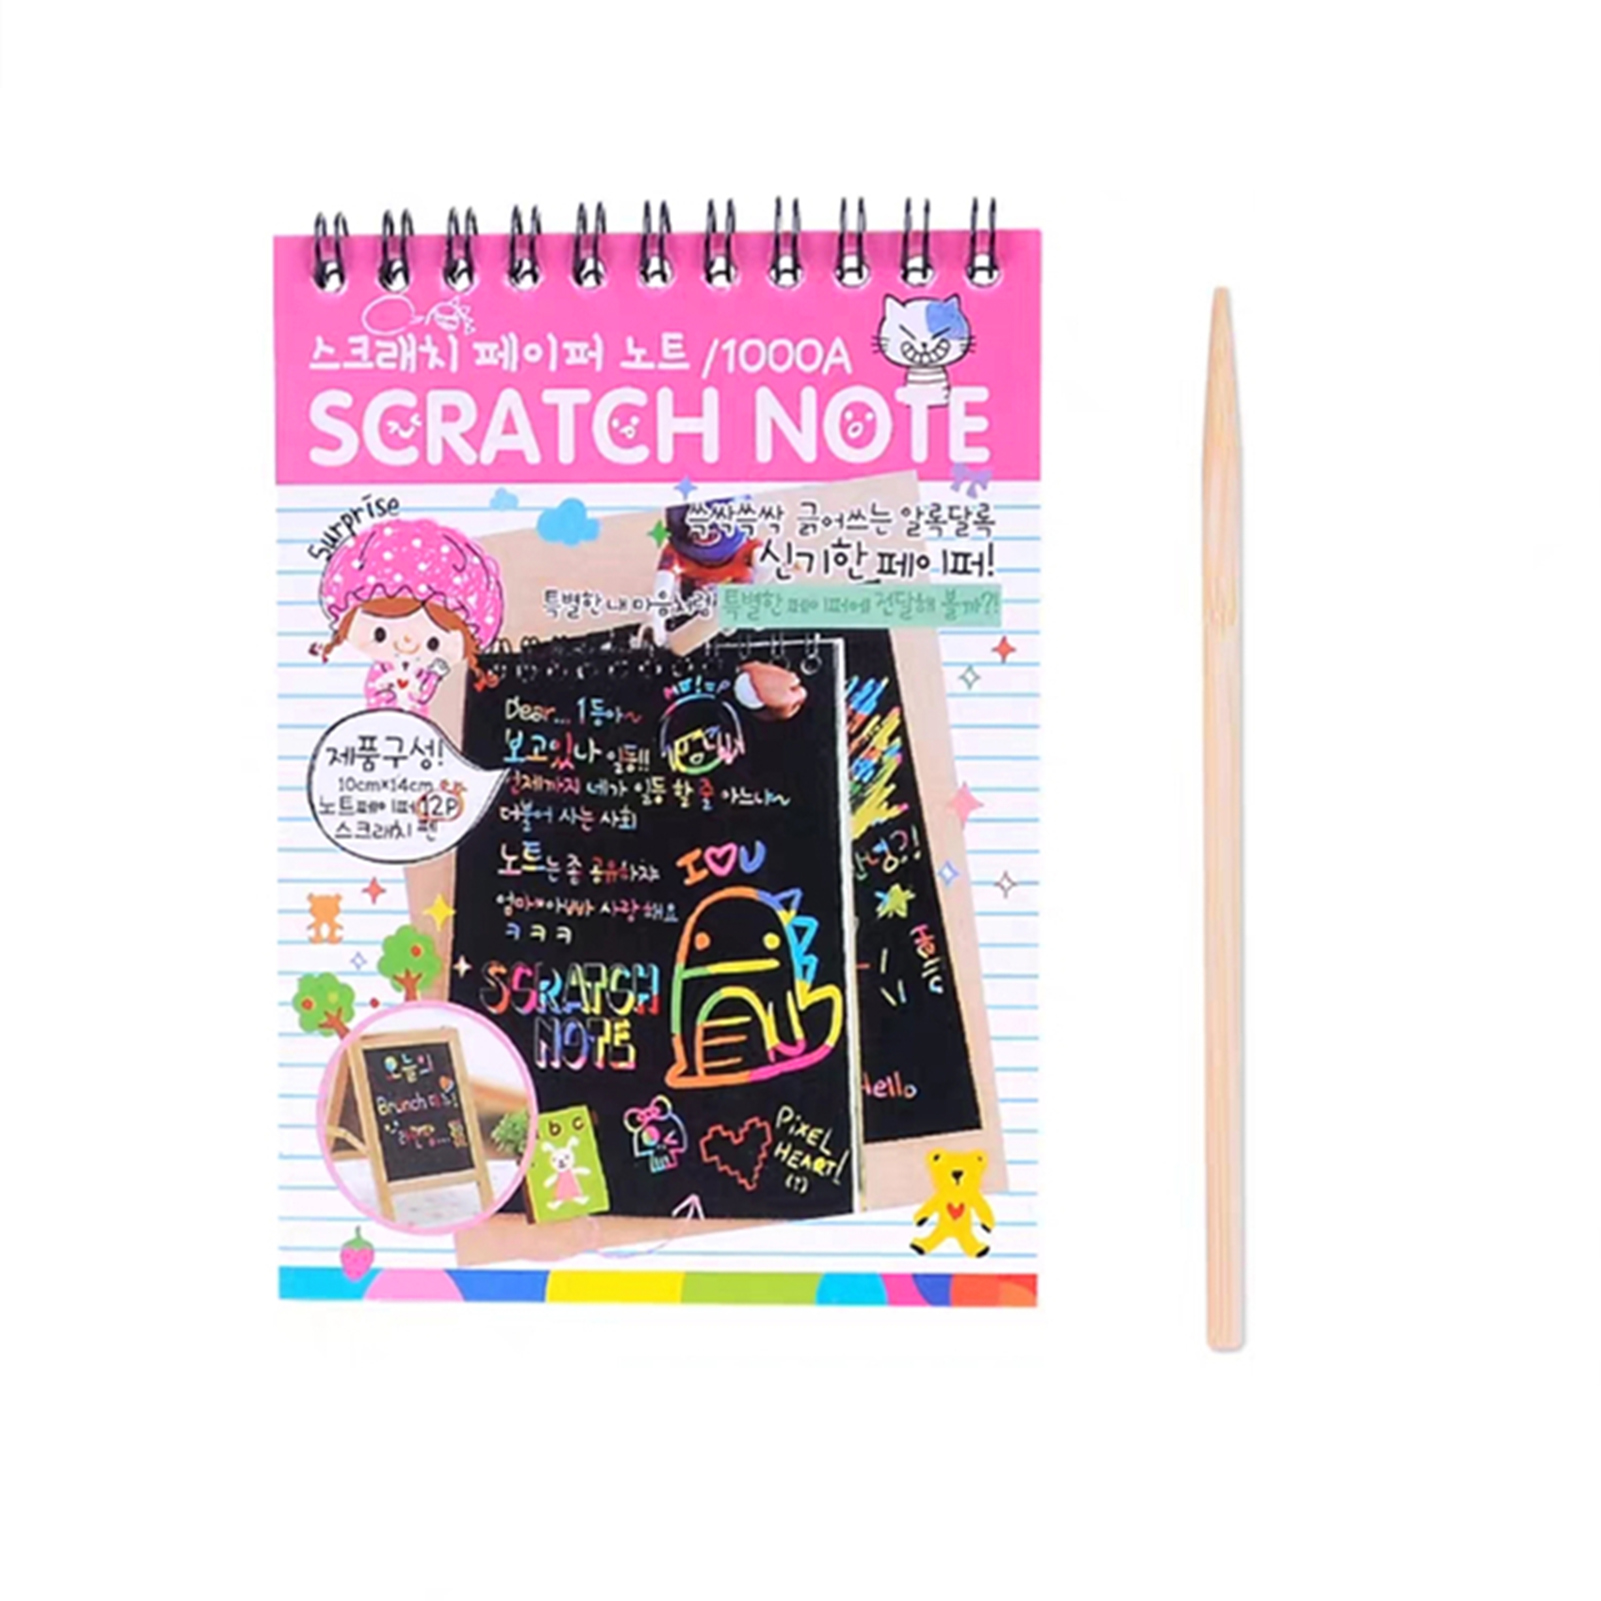 스크래치 페이퍼 노트 /1000A
SCRATCH NOTE
Surprise
쓱싹쓱싹 긁어쓰는 알록달록
신기한 페이퍼!
특별한 내마음처럼! 특별한 페이퍼에 전달해 볼까?!
제품구성!
10cm×14cm
노트페이퍼 12P
스크래치 펜
Dear... 1등아~
보고있나 일등!!
언제까지 네가 일등 할 줄 아느냐~
더불어 사는 사회
노트는 좀 공유하자
엄마 아빠 사랑해요
ㅋㅋㅋ
I U
SCRATCH
NOTE
PIXEL
HEART!
(!)
안녕?!
Hello
Hello
오늘의
Brunch
abc